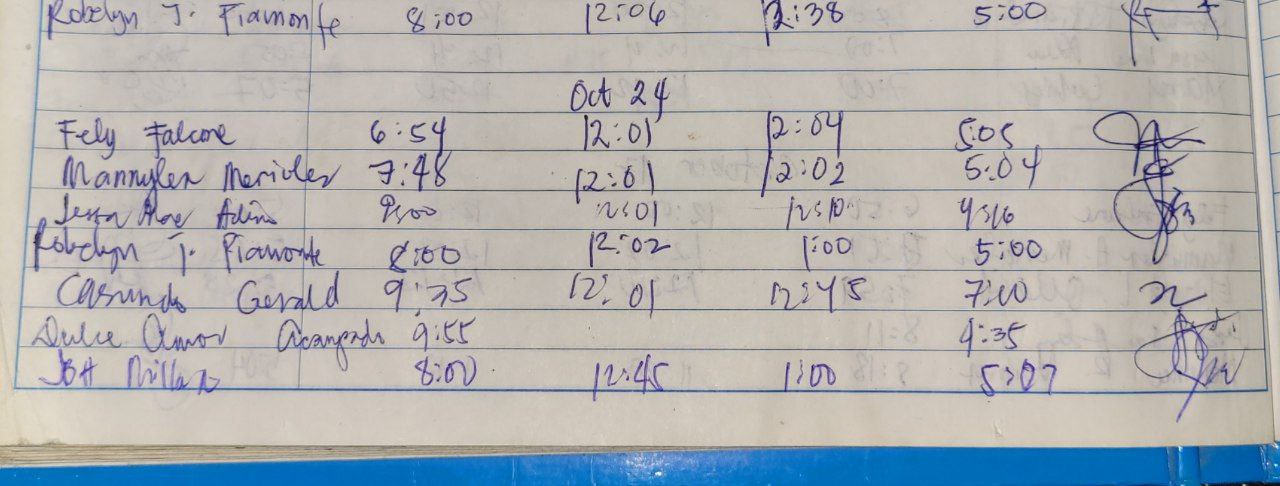 Robelyn J. Fiamonte 8:00 12:06 12:38 5:00
Oct 24
Fely Falcone 6:54 12:01 12:04 5:05
Mannylen Merioles 7:48 12:01 12:02 5:04
Jessa Mae Adino 9:00 12:01 12:10 4:16
Robelyn J. Fiamonte 8:00 12:02 1:00 5:00
Casundo Gerald 9:35 12:01 12:45 7:00
Dulce Amor 9:55 4:35
8:00 12:45 1:00 5:07